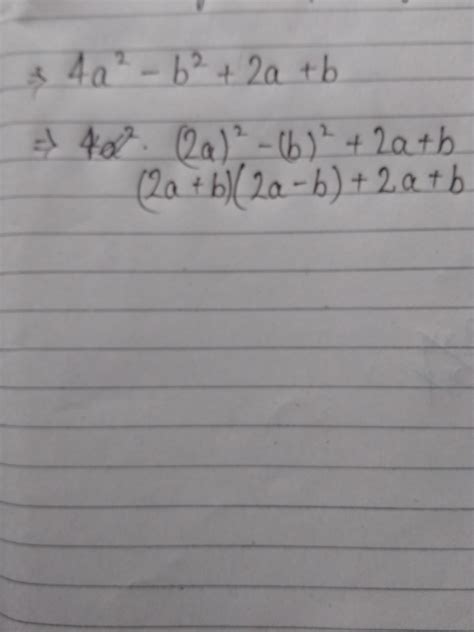 ⇒ 4a² - b² + 2a + b
⇒ (2a)² - (b)² + 2a + b
(2a + b)(2a - b) + 2a + b